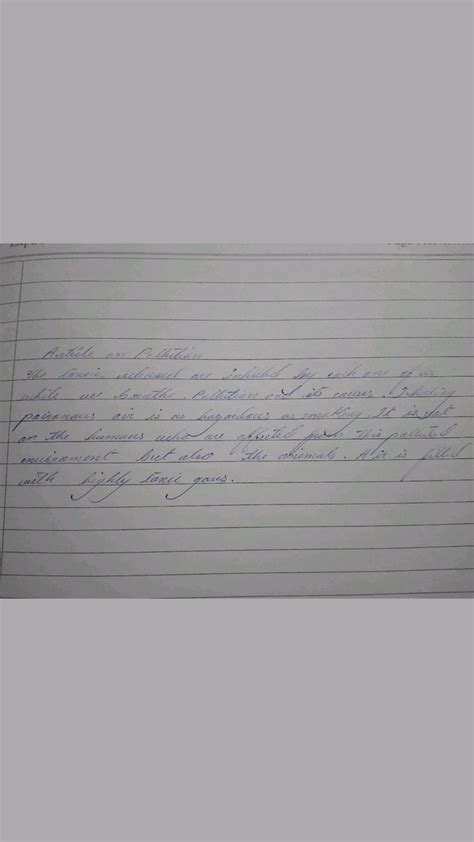 Article on Pollution
The toxic released are inhaled by each one of us
while we breathe. Pollution and its causes. Inhaling
poisonous air is as hazardous as smoking. It is not
on the humans who are affected from this polluted
environment but also the animals. Air is filled
with highly toxic gases.